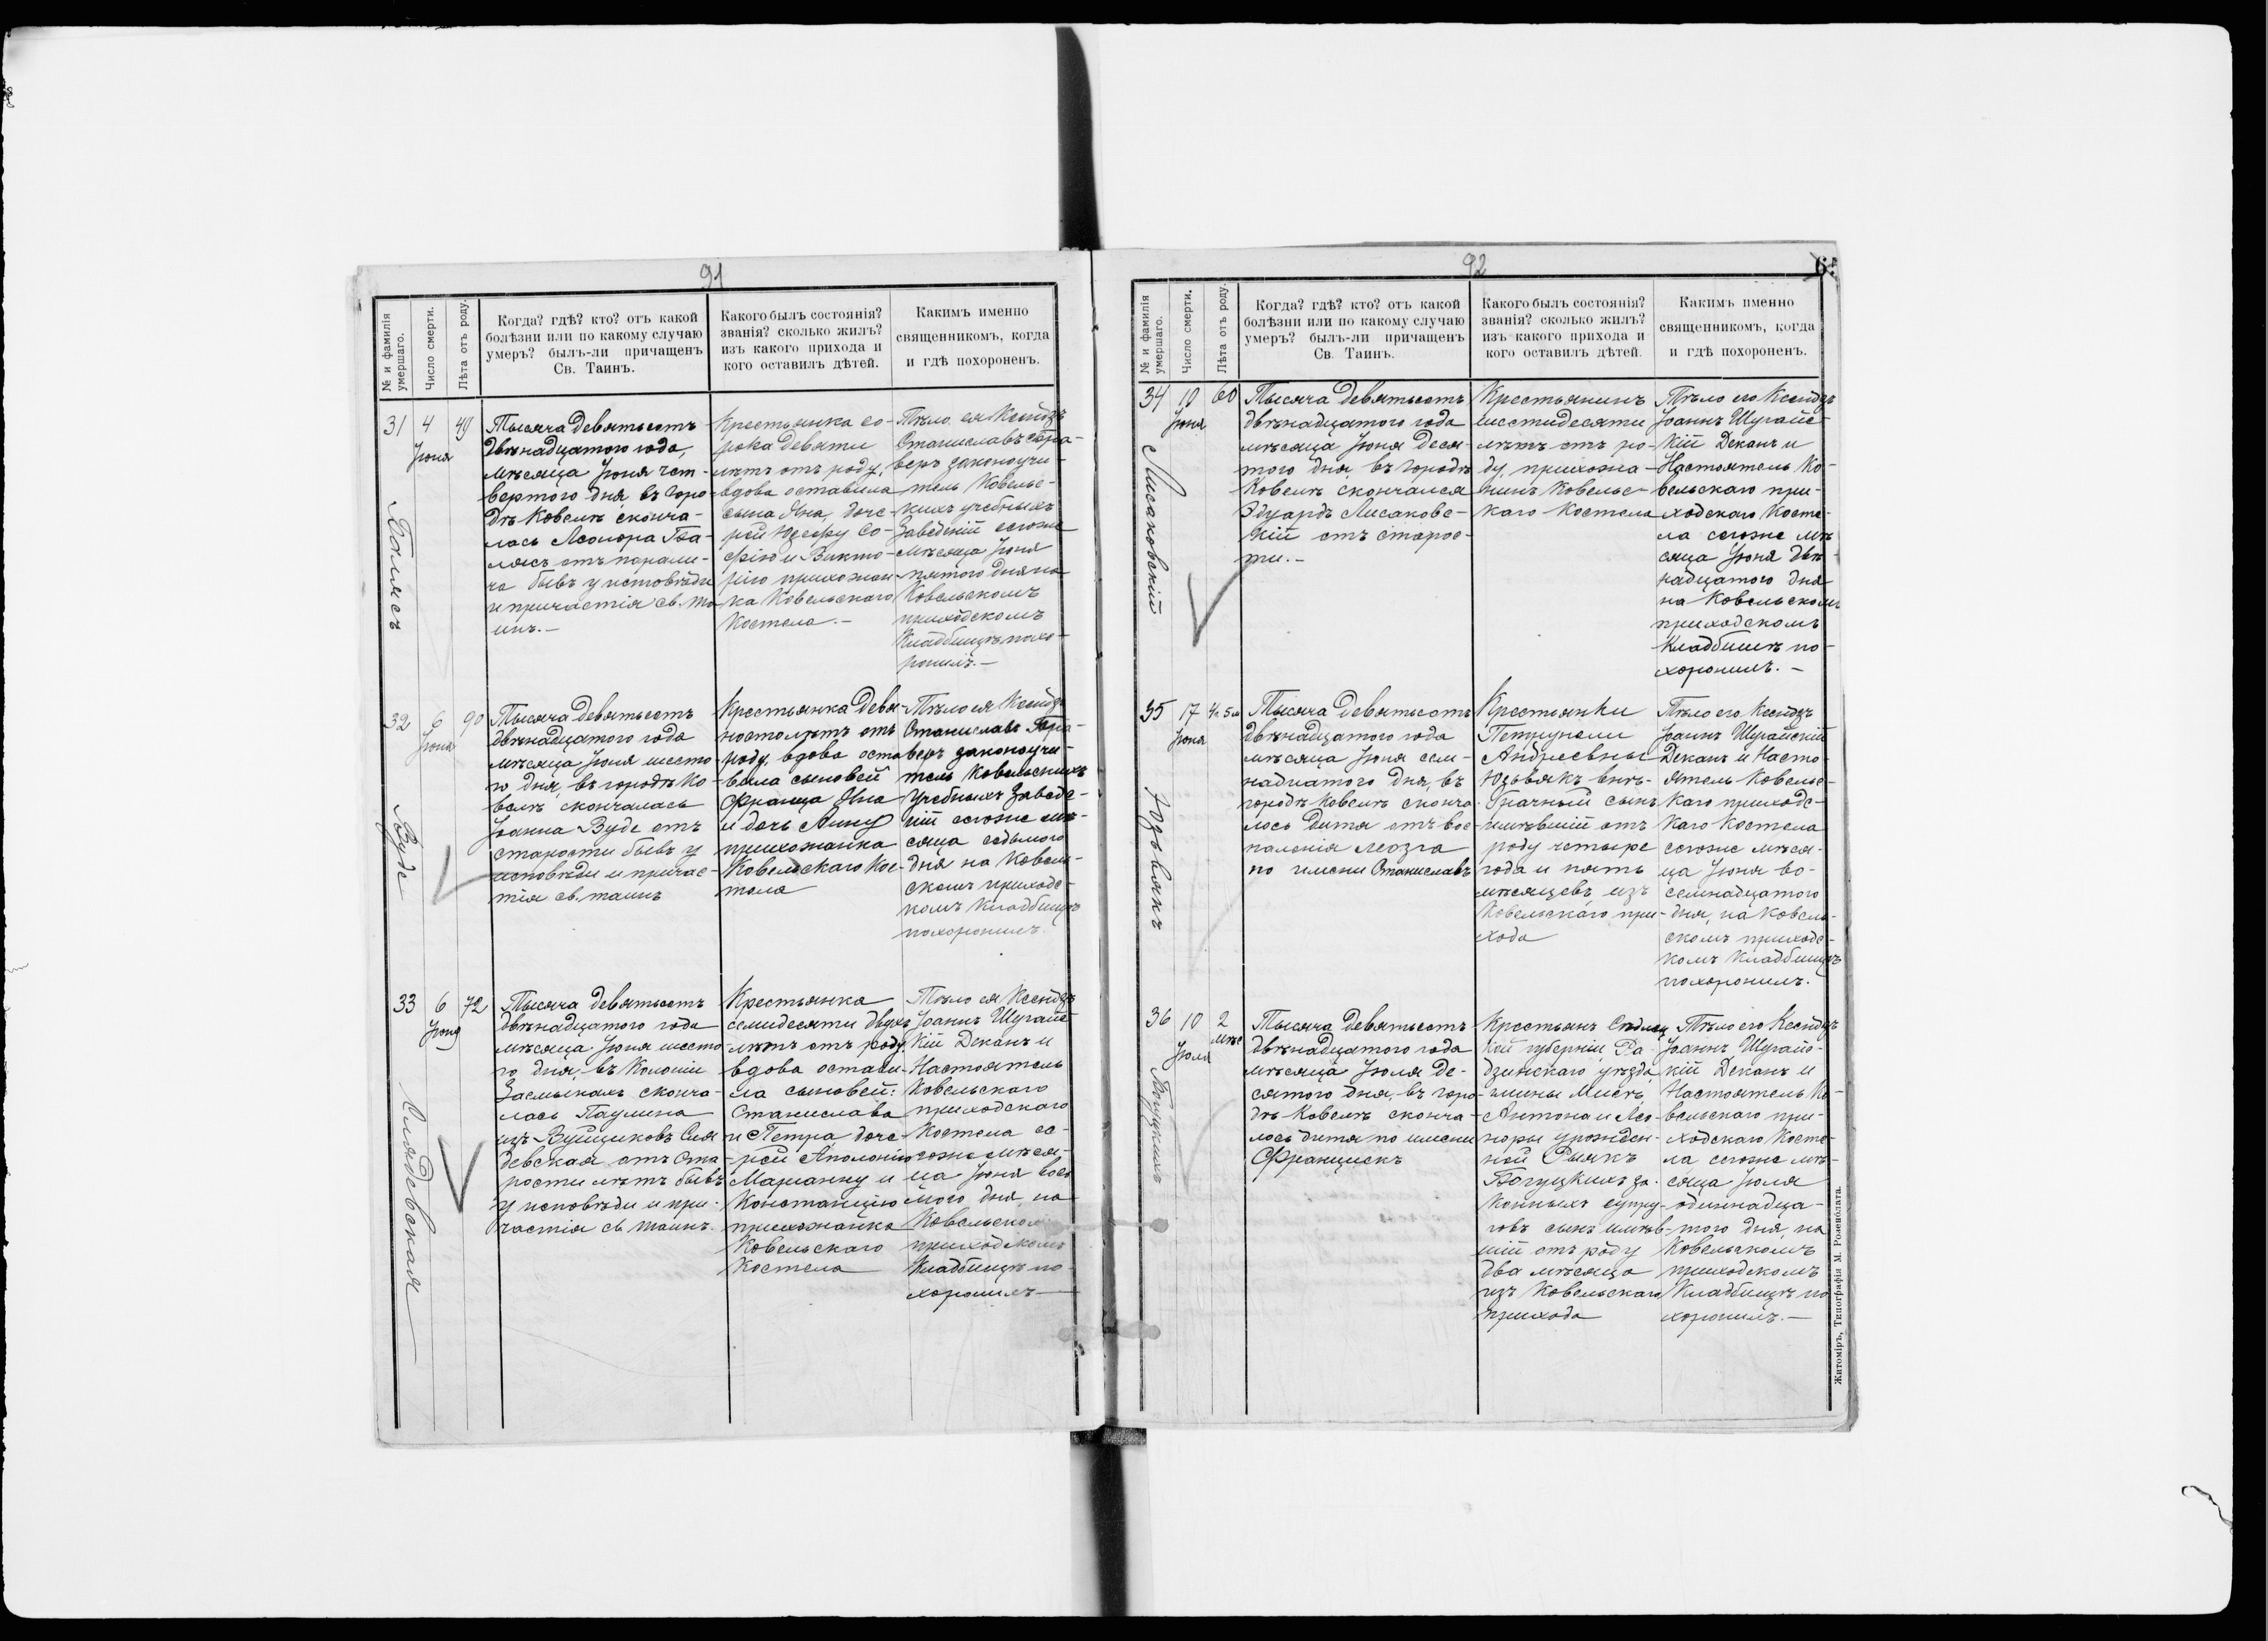 91
№ и фамилія умершаго.
Число смерти.
Лѣта отъ роду.
Когда? гдѣ? кто? отъ какой
болѣзни или по какому случаю
умеръ? былъ-ли причащенъ
Св. Таинъ.
Какого былъ состоянія?
званія? сколько жилъ?
изъ какого прихода и
кого оставилъ дѣтей.
Какимъ именно
священникомъ, когда
и гдѣ похороненъ.
31
4
Іюня
49
Тысяча девятьсотъ
двѣнадцатого года,
мѣсяца Іюня чет-
вертого дня, въ горо-
дѣ Ковелѣ сконча-
лась Леонора
отъ парали-
ча бывъ у исповѣди
и причастія св. та-
инъ.—
Крестьянка со-
рока девяти
лѣтъ отъ роду,
вдова оставила
сына Яна, доче-
рей Юзефу Со-
фію и Викто-
рію прихожан-
ка Ковельскаго
Костела.—
Тѣло ея Ксендзъ
Станиславъ
законоучи-
тель Ковельс-
кихъ учебныхъ
Заведеній сегоже
мѣсяца Іюня
пятого дня на
Ковельскомъ
приходскомъ
Кладбищѣ похо-
ронилъ.—
32
6
Іюня
90
Вуде
Тысяча девятьсотъ
двѣнадцатого года
мѣсяца Іюня шесто-
го дня, въ городѣ Ко-
велѣ скончалась
Іоанна Вуде отъ
старости бывъ у
исповѣди и причас-
тія св. таинъ
Крестьянка девя-
ностолѣтъ отъ
роду, вдова оста
вила сыновей
Франца Яна
и дочь Анну
прихожанка
Ковельскаго Кос-
тела
Тѣло ея Ксендзъ
Станиславъ
законоучи-
тель Ковельскихъ
Учебныхъ Заведе-
ній сегоже мѣ-
сяца седьмого
дня на Ковель-
скомъ приходс-
комъ Кладбищѣ
похоронилъ.
33
6
Іюня
72
Тысяча девятьсотъ
двѣнадцатого года
мѣсяца Іюня шесто
го дня, въ Колоніи
Засмыкахъ сконча-
лась Паулина
изъ
отъ ста
рости лѣтъ бывъ
у исповѣди и при-
частія св. таинъ.
Крестьянка
семидесяти двухъ
лѣтъ отъ роду,
вдова остави-
ла сыновей:
Станислава
и Петра, доче-
рей Аполонію
Марианну и
Констанцію
прихожанка
Ковельскаго
Костела
Тѣло ея Ксендзъ
Іоаннъ Шугайс
кій Деканъ и
Настоятель
Ковельскаго
приходскаго
Костела се-
гоже мѣся-
ца Іюня вось
мого дня на
Ковельскомъ
приходскомъ
Кладбищѣ по
хоронилъ—
92
№ и фамилія умершаго.
Число смерти.
Лѣта отъ роду.
Когда? гдѣ? кто? отъ какой
болѣзни или по какому случаю
умеръ? былъ-ли причащенъ
Св. Таинъ.
Какого былъ состоянія?
званія? сколько жилъ?
изъ какого прихода и
кого оставилъ дѣтей.
Какимъ именно
священникомъ, когда
и гдѣ похороненъ.
34
10
Іюня
60
Лисаковскій
Тысяча девятьсотъ
двѣнадцатого года
мѣсяца Іюня деся-
того дня, въ городѣ
Ковелѣ скончался
Эдуардъ Лисаковс-
кій отъ старос-
ти.—
Крестьянинъ
шестидесяти
лѣтъ отъ ро-
ду, прихожа-
нинъ Ковельс-
каго Костела
Тѣло его Ксендзъ
Іоаннъ Шугайс-
кій Деканъ и
Настоятель Ко-
вельскаго при-
ходскаго Косте-
ла сегоже мѣ
сяца Іюня двѣ-
надцатого дня
на Ковельскомъ
приходскомъ
Кладбищѣ по-
хоронилъ.—
35
17
Іюня
4г. 5м
Юзьвякъ
Тысяча девятьсотъ
двѣнадцатого года
мѣсяца Іюня сем-
надцатого дня, въ
городѣ Ковелѣ сконча-
лось дитя отъ вос-
паленія мозга
по имени Станиславъ
Крестьянки
Петрунели
Андреевны
Юзьвякъ внѣ-
брачный сынъ
имѣвшій отъ
роду четыре
года и пять
мѣсяцевъ, изъ
Ковельскаго при-
хода
Тѣло его Ксендзъ
Іоаннъ Шугайскій
Деканъ и Насто-
ятель Ковельс-
каго приходс-
каго Костела
сегоже мѣся-
ца Іюня во-
семнадцатого
дня, на Ковель-
скомъ приходс-
комъ Кладбищѣ
похоронилъ.
36
10
Іюля
2
мѣс
Тысяча девятьсотъ
двѣнадцатого года
мѣсяца Іюля де-
сятого дня, въ горо-
дѣ Ковелѣ сконча-
лось дитя по имени
Францискъ
Крестьянъ Сѣдлец
кой губерніи, Ра-
дзинскаго уѣзда,
гмины
Антона и Лео-
норы урожден-
ной
за-
конныхъ супру-
говъ сынъ имѣв-
шій отъ роду
два мѣсяца
изъ Ковельскаго
прихода
Тѣло его Ксендзъ
Іоаннъ Шугайс-
кій Деканъ и
Настоятель Ко-
вельскаго при-
ходскаго Косте-
ла сегоже мѣ-
сяца Іюля
одиннадца-
того дня, на
Ковельскомъ
приходскомъ
Кладбищѣ по
хоронилъ.—
Житоміръ, Типографія М. Розенблата.